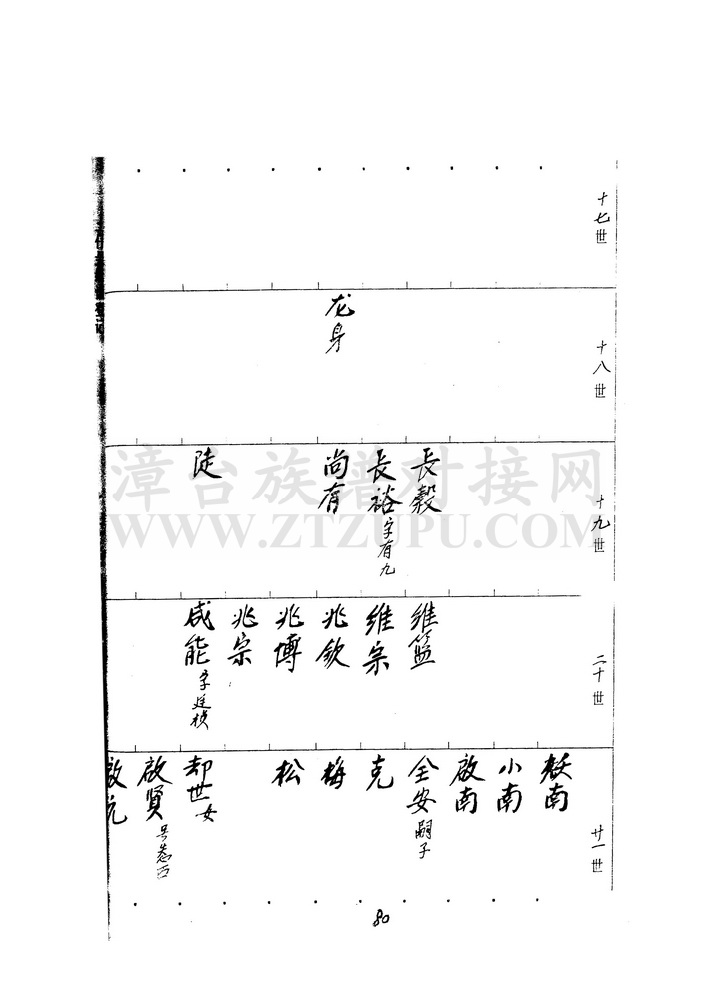 十七世
十八世
龙身
十九世
長榖
長裕 字有九
尚有
陡
二十世
維籃
維宗
兆欽
兆博
兆宗
咸能 字廷楨
廿一世
南
小南
啟南
全安 嗣子
克
梅
松
却世 女
啟賢
啟元
80
漳台族谱对接网
WWW.ZTZUPU.COM